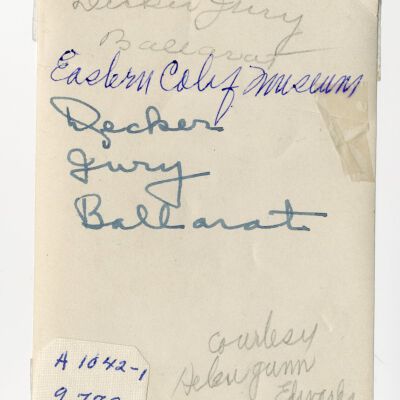 Decker Jury
Ballarat
Eastern Calif Museum
Decker
Jury
Ballarat
Courtesy
Helen Gunn
Edwards
A 1042-1